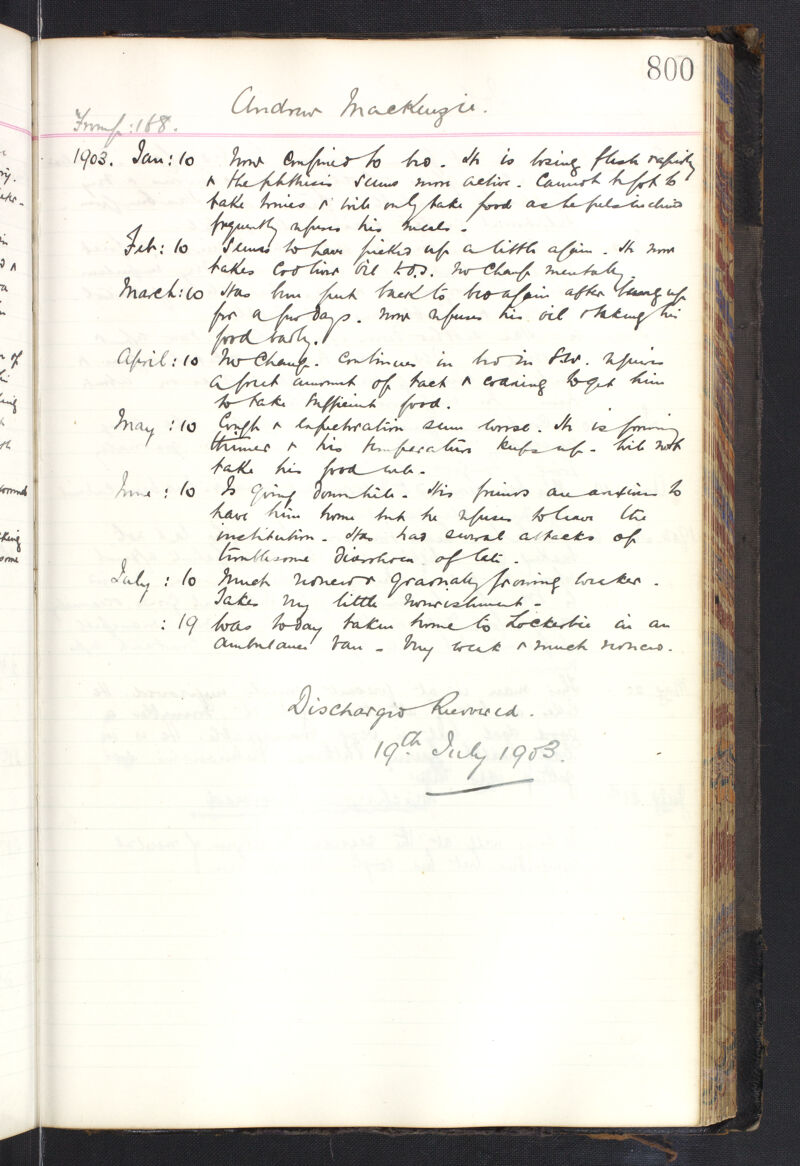 800
Andrew MacKenzie.
From p: 188.
1903. Jan: 10 Now confined to bed. He is losing flesh rapidly
& the phthisis seems more active. Cannot be got to
take tonics & will only take food as he feels inclined
frequently refuses his meals.
Feb: 10 Seems to have picked up a little again. He now
takes cod liver oil t.d.s. No change mentally.
March: 10 Has been put back to bed again after being up
for a few days. Now refuses his oil & taking his
food badly.
April: 10 No change. Continues in bed in refuses
a great amount of tact & coaxing to get him
to take sufficient food.
May: 10 Cough & expectoration seem worse. He is growing
thinner & his temperature keeps up. Will not
take his food well.
June: 10 Is going downhill. His friends are anxious to
have him home but he refuses to leave the
institution. Has had several attacks of
troublesome diarrhoea of late.
July: 10 Much reduced & gradually growing weaker.
Takes very little nourishment.
: 19 Was today taken home to Lockerbie in an
ambulance van. Very weak & much reduced.
Discharged Relieved.
19th July 1903.